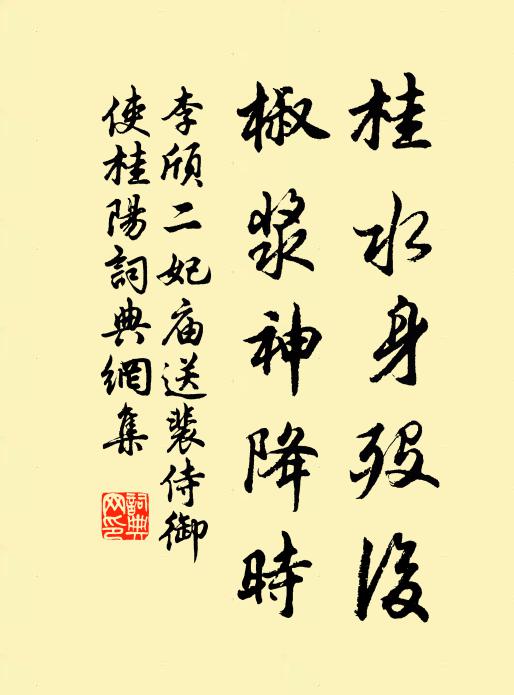 桂水身歿後
椒漿神降時
李頎二妃廟送裴侍御
使桂陽詞典網集
詞典
网印